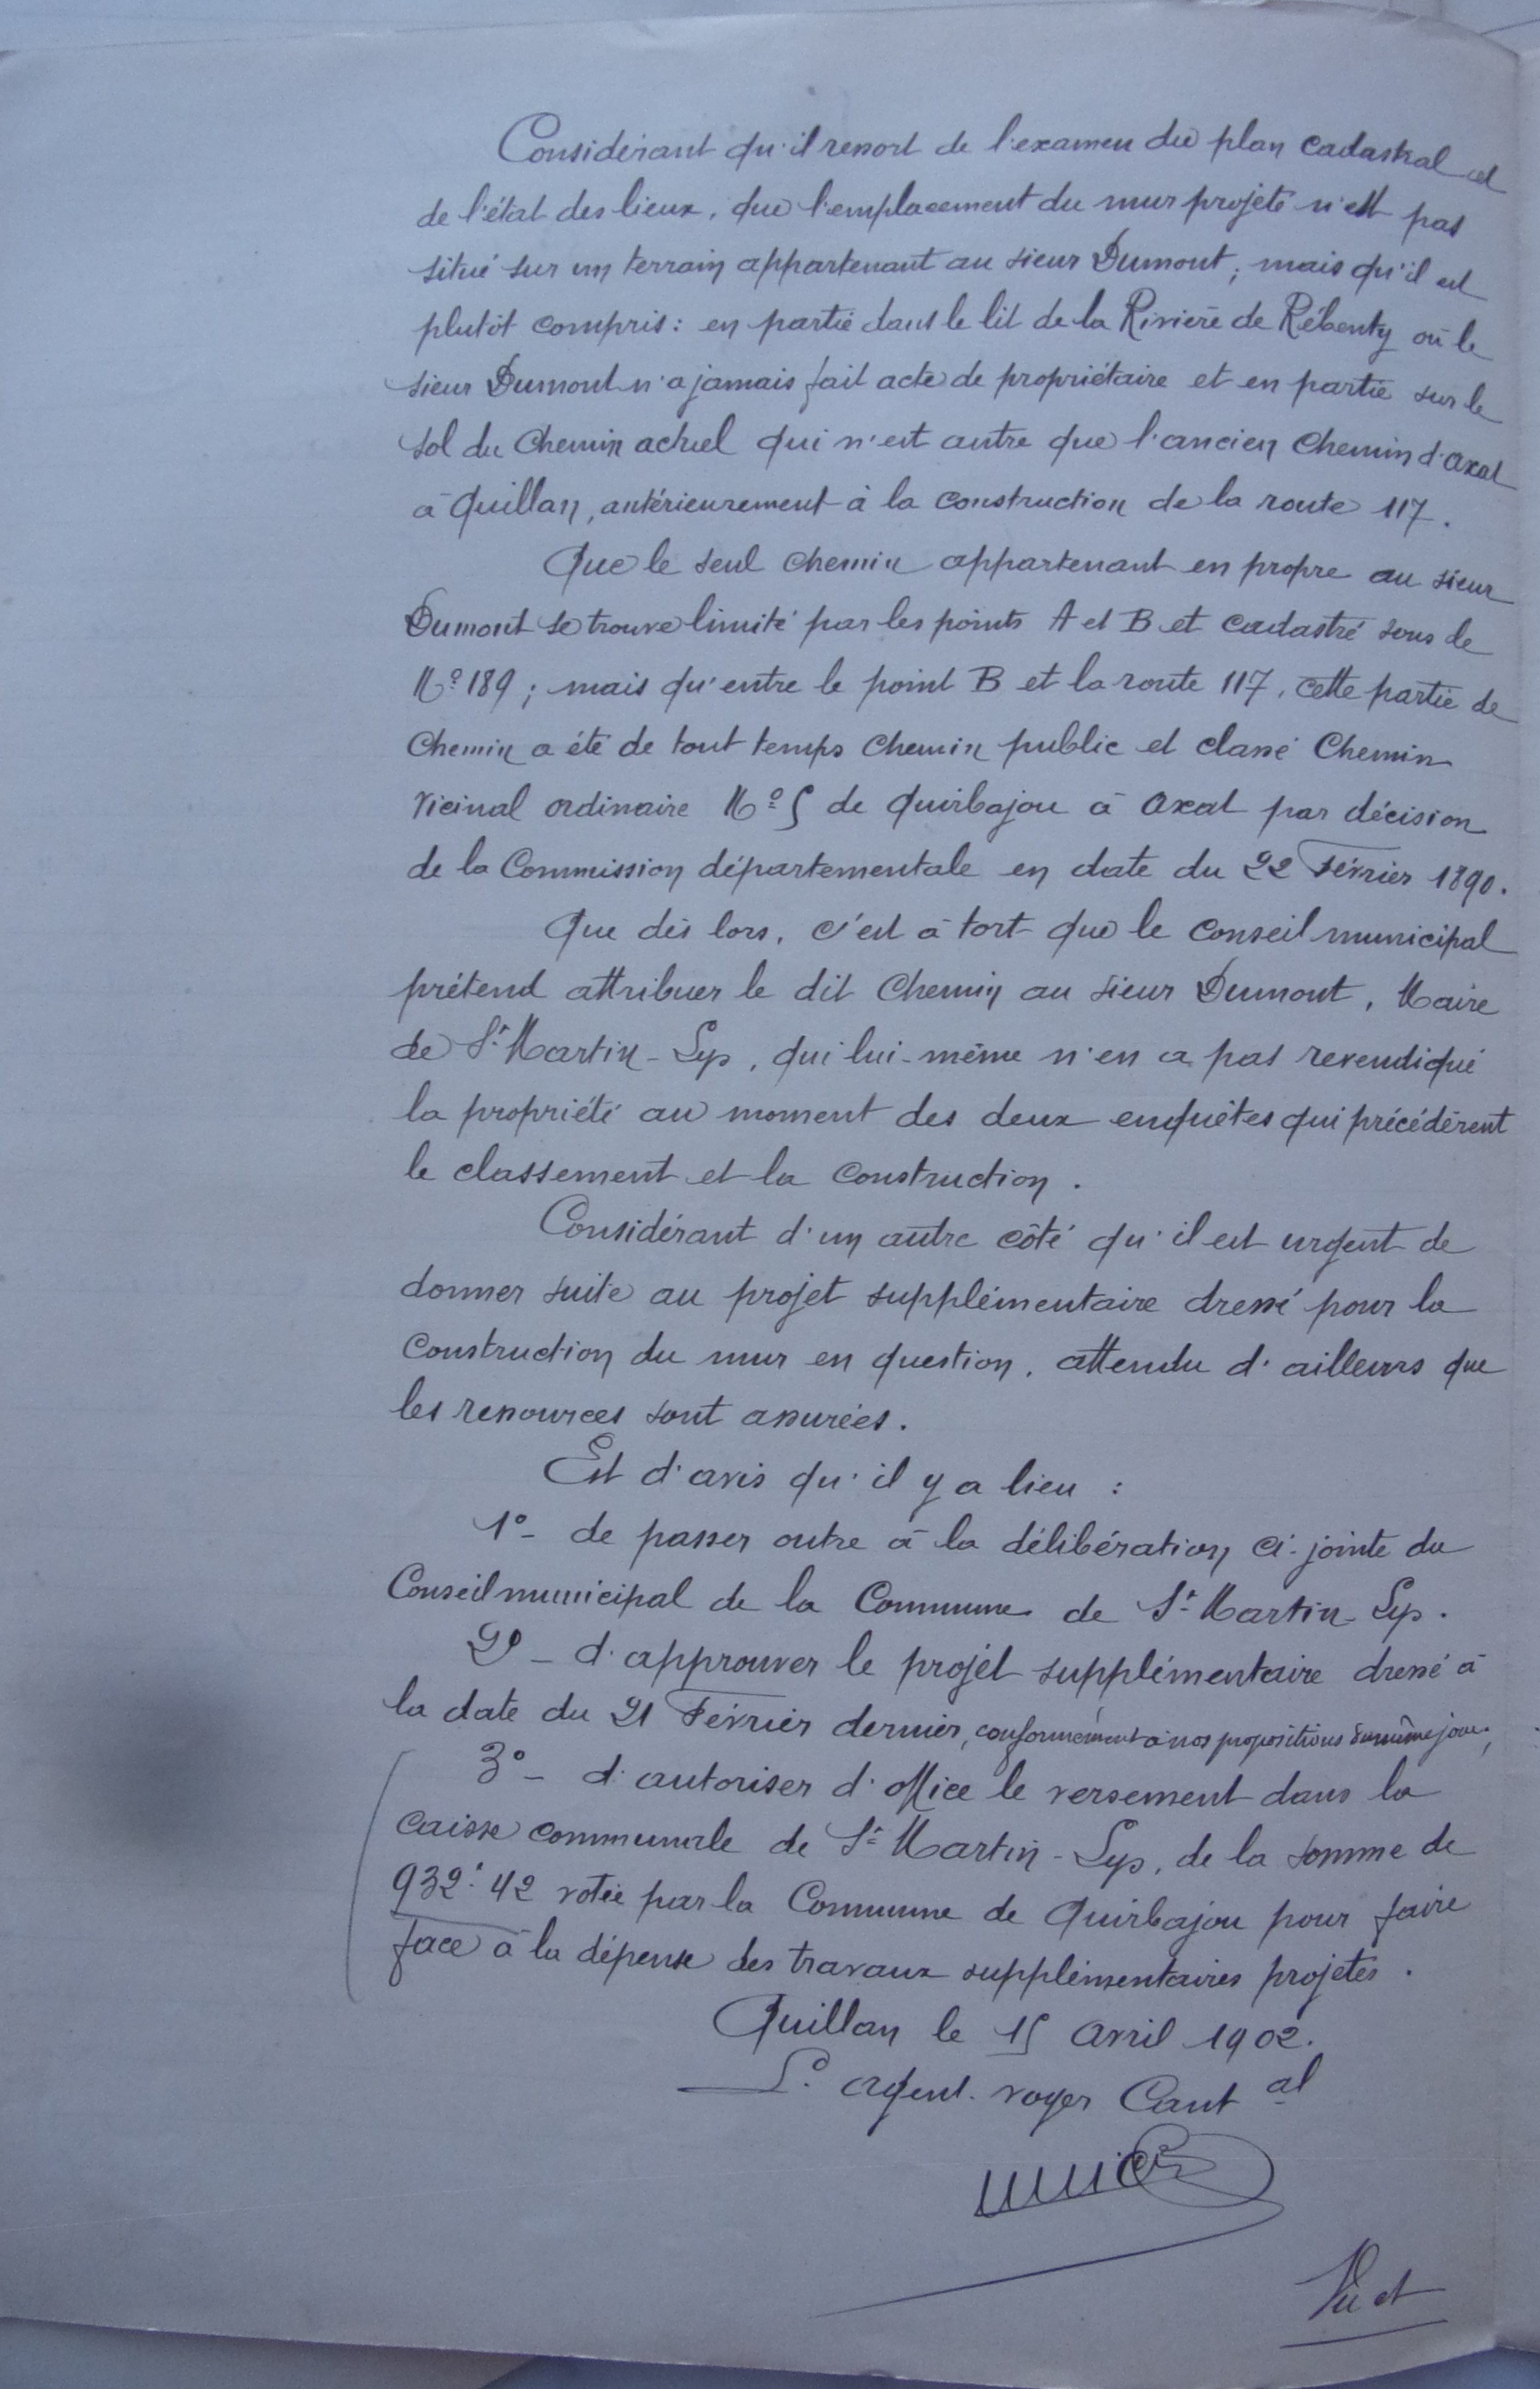 Considérant qu'il ressort de l'examen du plan cadastral et
de l'état des lieux, que l'emplacement du mur projeté n'est pas
situé sur un terrain appartenant au sieur Dumont, mais qu'il est
plutôt compris : en partie dans le lit de la Rivière de Rébenty où le
sieur Dumont n'a jamais fait acte de propriétaire et en partie sur le
sol du Chemin actuel qui n'est autre que l'ancien Chemin d'Axat
à Quillan, antérieurement à la construction de la route 117.
Que le seul chemin appartenant en propre au sieur
Dumont se trouve limité par les points A et B et cadastré sous le
N° 189 ; mais qu'entre le point B et la route 117, cette partie de
Chemin a été de tout temps Chemin public et classé Chemin
vicinal ordinaire N° 5 de Quirbajou à Axat par décision
de la Commission départementale en date du 22 Février 1890.
Que dès lors, c'est à tort que le Conseil municipal
prétend attribuer le dit Chemin au sieur Dumont, Maire
de St Martin-Lys, qui lui-même n'en a pas revendiqué
la propriété au moment des deux enquêtes qui précédèrent
le classement et la construction.
Considérant d'un autre côté qu'il est urgent de
donner suite au projet supplémentaire dressé pour la
construction du mur en question, attendu d'ailleurs que
les ressources sont assurées.
Est d'avis qu'il y a lieu :
1° - de passer outre à la délibération ci-jointe du
Conseil municipal de la Commune de St Martin-Lys.
2° - d'approuver le projet supplémentaire dressé à
la date du 21 Février dernier, conformément à nos propositions du même jour,
3° - d'autoriser d'office le versement dans la
caisse communale de St Martin-Lys, de la somme de
932f 42 votée par la Commune de Quirbajou pour faire
face à la dépense des travaux supplémentaires projetés.
Quillan le 15 Avril 1902.
L. agent-voyer Cantal
Vu et